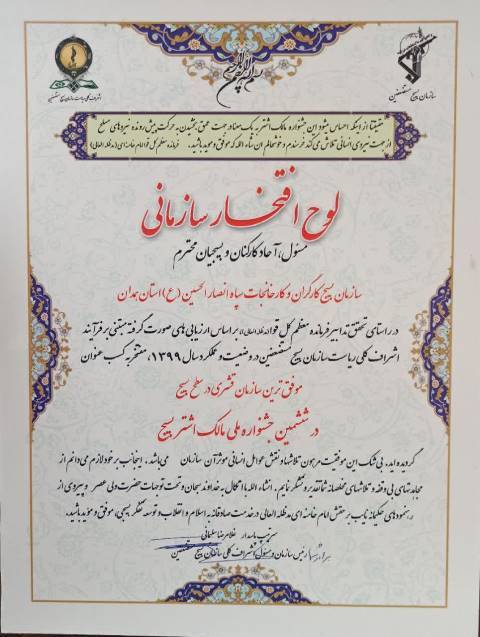 بسم الله الرحمن الرحیم
سازمان بسیج مستضعفین
اشراف کلی ریاست سازمان بسیج مستضعفین
حقیقتا از اینکه احساس میشود این جشنواره مالک اشتر به یک معنا در جهت عمق بخشیدن به حرکت پیش رونده نیروهای مسلح
از جهت نیروی انسانی تلاش می کند خرسندم و خوشحالم ان شاء الله که موفق و موید باشید. فرمانده معظم کل قوا امام خامنه ای (مدظله العالی)
لوح افتخار سازمانی
مسئول، آحاد کارکنان و بسیجیان محترم
سازمان بسیج کارگران و کارخانجات سپاه انصار الحسین (ع) استان همدان
در راستای تحقق تدابیر فرمانده معظم کل قوا (مدظله العالی) بر اساس ارزیابی های صورت گرفته مبتنی بر فرآیند
اشراف کلی ریاست سازمان بسیج مستضعفین در وضعیت و عملکرد سال ۱۳۹۹، مفتخر به کسب عنوان
موفق ترین سازمان قشری در سطح بسیج
در ششمین جشنواره ملی مالک اشتر بسیج
گردیده اید. بی شک این موفقیت مرهون تلاشها و نقش عوامل انسانی موثر آن سازمان می باشد، اینجانب بر خود لازم می دانم از
مجاهدتهای بی وقفه و تلاشهای مخلصانه شما تقدیر و تشکر نمایم. انشاء الله با اتکال به خداوند سبحان و تحت توجهات حضرت ولی عصر و پیروی از
رهنمودهای حکیمانه نایب بر حقش امام خامنه ای مدظله العالی در خدمت صادقانه به اسلام و انقلاب و توسعه تفکر بسیجی، موفق و موید باشید.
سرتیپ پاسدار غلامرضا سلیمانی
رئیس سازمان و مسئول اشراف کلی سازمان بسیج مستضعفین